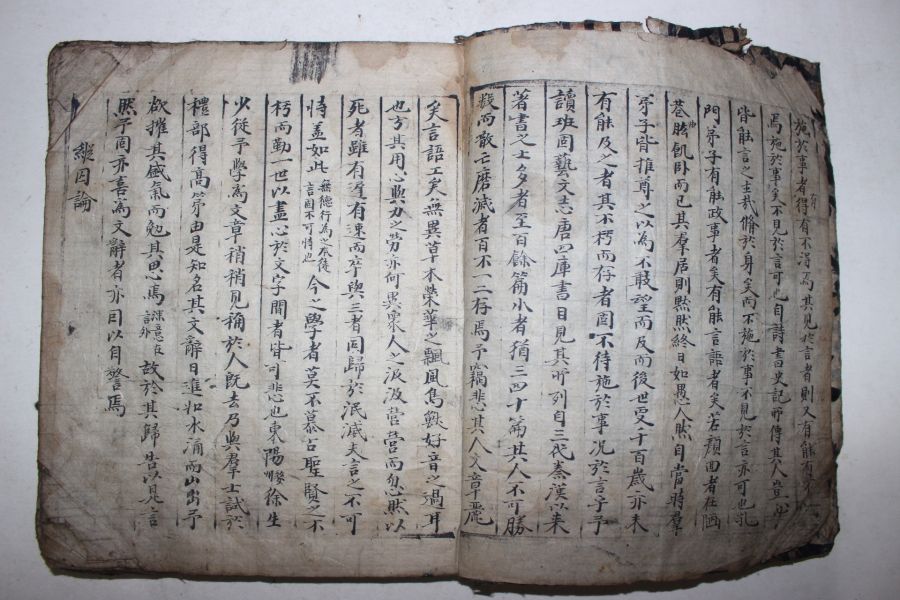 施於事者得有不得焉其見於言者則又有能有不
焉施於事矣不見於言可也自詩書史記所傳其人豈必
皆能言之士哉脩於身矣而不施於事不見於言亦可也孔
門弟子有能政事者矣有能言語者矣若顏回者在陋
巷曲肱飢卧而已其羣居則默然終日如愚人然自當時羣
弟子皆推尊之以為不敢望而及而後世更千百歲亦未
有能及之者其不朽而存者固不待施於事况於言乎予
讀班固藝文志唐四庫書目見其所列自三代秦漢以来
著書之士多者至百餘篇小者猶三四十篇其人不可勝
數而散亡磨滅者百不一二存焉予竊悲其人文章麗
矣言語工矣無異草木榮華之飄風鳥獸好音之過耳
也方其用心與力之勞亦何異衆人之汲汲營營而忽然以
死者雖有遲有速而卒與三者同歸於泯滅夫言之不可
恃盖如此無德行為之底後言固不可恃也今之學者莫不慕古聖賢之不
朽而勤一世以盡心於文字間者皆可悲也東陽徐生
少從予學為文章稍稍見稱於人既去乃與羣士試於
禮部得高第由是知名其文辭日進如水涌而山出予
欲摧其盛氣而勉其思焉深意在言外故於其歸告以是言
然予固亦喜為文辭者亦因以自警焉
縱囚論